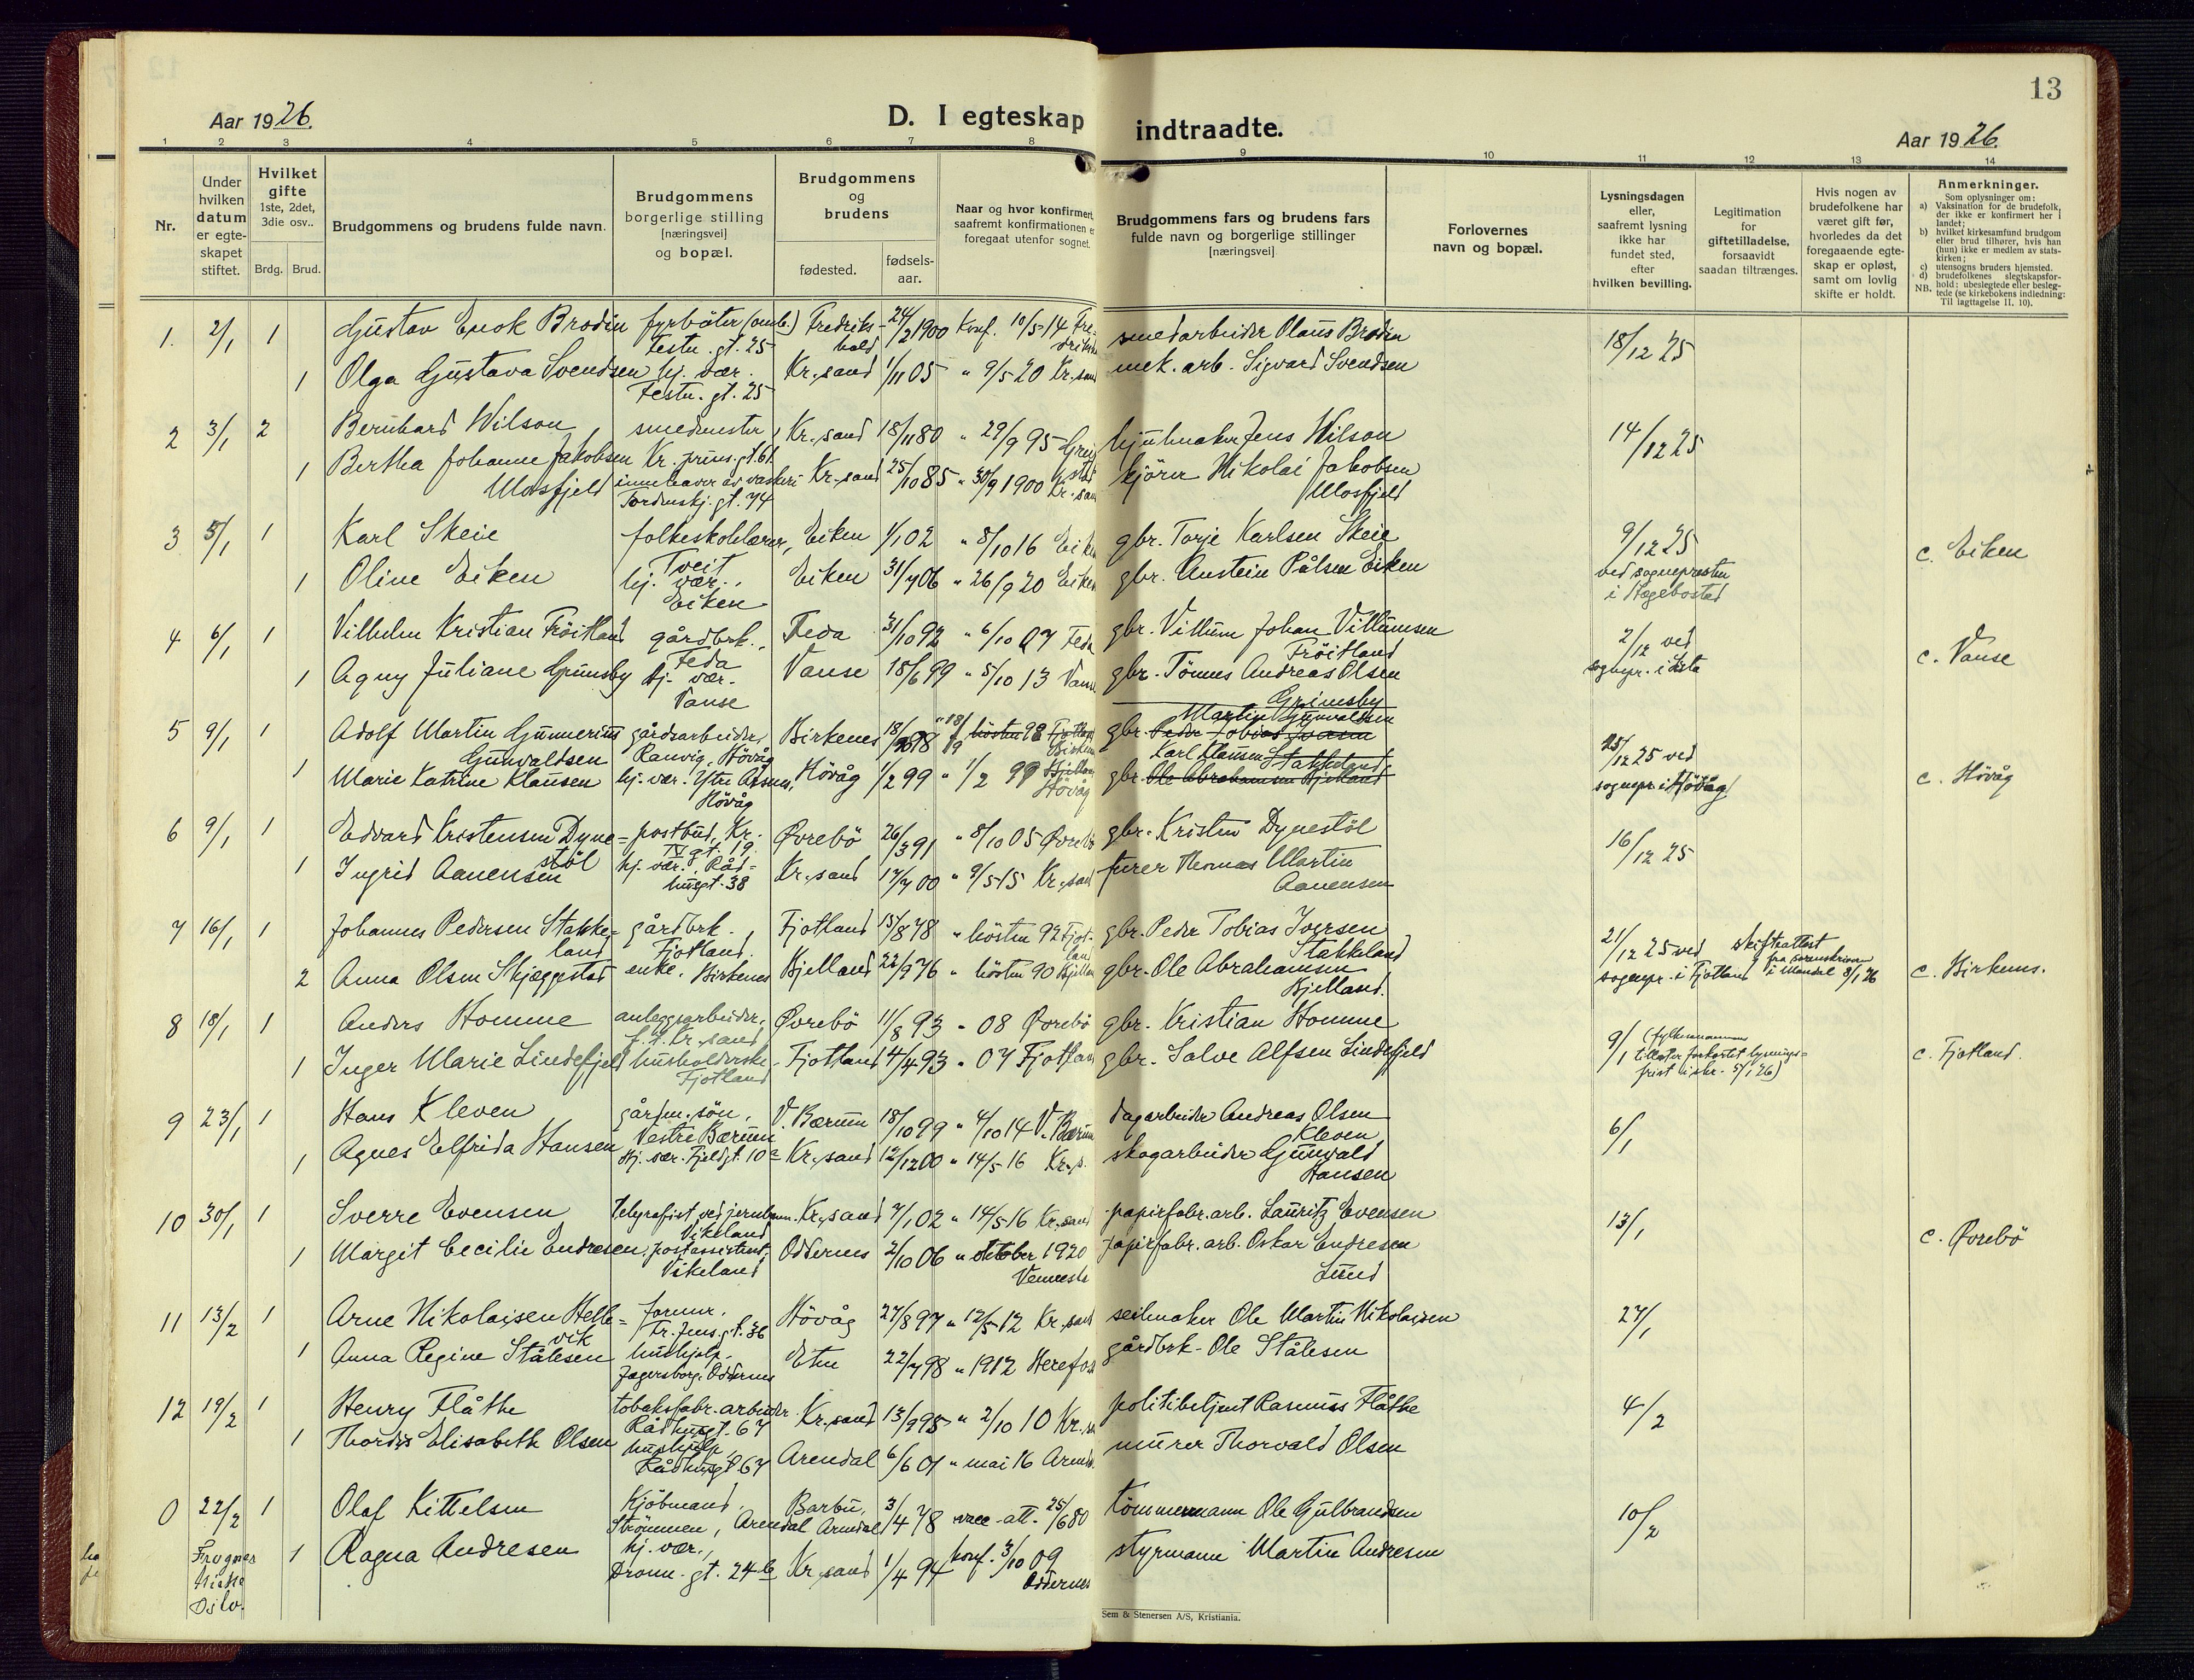 13
Aar 1926.
D. I egteskap indtraadte.
Aar 1926.
1 2 3 4 5 6 7 8 9 10 11 12 13 14
Nr.
Under hvilken datum er egteskapet stiftet.
Hvilket gifte 1ste, 2det, 3die osv..
Brdg. Brud.
Brudgommens og brudens fulde navn.
Brudgommens borgerlige stilling [næringsvei] og bopæl.
Brudgommens og brudens
fødested.
fødsels-aar.
Naar og hvor konfirmert, saafremt konfirmationen er foregaat utenfor sognet.
Brudgommens fars og brudens fars fulde navn og borgerlige stillinger [næringsvei]
Forlovernes navn og bopæl.
Lysningsdagen eller, saafremt lysning ikke har fundet sted, efter hvilken bevilling.
Legitimation for giftetilladelse, forsaavidt saadan tiltrænges.
Hvis nogen av brudefolkene har været gift før, hvorledes da det foregaaende egteskap er opløst, samt om lovlig skifte er holdt.
Anmerkninger.
Som oplysninger om:
a) Vaksination for de brudefolk, der ikke er konfirmert her i landet;
b) hvilket kirkesamfund brudgom eller brud tilhører, hvis han (hun) ikke er medlem av statskirken;
c) utensogns bruders hjemsted.
d) brudefolkenes slegtskapsforhold: ubeslegtede eller beslegtede (se kirkebokens indledning: Til iagttagelse II, 10).
NB.
1. 2/1 1 Gustav Enok Brodin fyrböter (omb.) Festn. gt. 25 Fredrikshald 24/2 1900 Konf. 10/5 14 smedarbeider Olaus Brodin 18/12 25
1 Olga Gustava Svendsen hj. vær. Festn. gt. 25 Kr.sand 1/11 05 " 9/5 20 Kr.sand mek. arb. Sigvard Svendsen
2 3/1 2 Bernhard Wilson smedmester, Kr. prins. gt. 61 Kr.sand 18/11 80 " 29/9 95 hjulmaker Jens Wilson 14/12 25
1 Bertha Johanne Jakobsen Mosfjeld innehaver av vaskeri Tordenskj. gt. 74 Kr.sand 25/10 85 " 30/9 1900 Kr.san kjörer Nikolai Jakobsen Mosfjeld
3 5/1 1 Karl Skeie folkeskolelærer, Tveit Eiken 1/1 02 " 8/10 16 Eiken gbr. Torje Karlsen Skeie 9/12 25 ved sognepresten i Hægebostad c. Eiken
1 Oline Eiken hj. vær., Eiken Eiken 31/7 06 " 26/9 20 Eiken gbr. Anstein Pålsen Eiken
4 6/1 1 Vilhelm Kristian Fröitland gårdbrk., Feda Feda 31/10 92 " 6/10 07 Feda gbr. Villum Johan Villumsen Fröitland 2/12 ved sognepr. i Lista c. Vanse
1 Agny Juliane Grimsby hj. vær. Vanse Vanse 18/6 99 " 5/10 13 Vanse gbr. Tönnes Andreas Olsen Grimsby
5 9/1 1 Adolf Martin Gunnerius Gunvaldsen gårdsarbeider, Ranvig, Hövåg Birkenes 98 hösten 98 Fjotland Birkenes gbr. Peder Tobias Iversen Martin Gunvaldsen 12 25 ved sognepr. i Hövåg c. Hövåg
1 Marie Katrine Klausen hj. vær. Ytre Hövåg Hövåg 1/2 99 " 1/2 99 Bjelland Hövåg gbr. Ole Abrahamsen Bjelland Karl Klausen Stakkeland
6 9/1 1 Edvard Kristensen Dynestöl postbud, Kr. IV gt. 19 Øvrebö 26/3 91 " 8/10 05 Øvrebö gbr. Kristen Dynestöl 16/12 25
1 Ingrid Aanensen hj. vær. Rådhusgt. 38 Kr.sand 17/7 00 " 9/5 15 Kr.sand furer Thomas Martin Aanensen
7 16/1 1 Johannes Pedersen Stakkeland gårdbrk., Fjotland. Fjotland 15/8 78 " hösten 92 Fjotland gbr. Peder Tobias Iversen Stakkeland 21/12 25 ved sognepr. i Fjotland skifteattest fra sorenskriveren i Mandal 8/1 26 c. Birkenes.
2 Anna Olsen Skjæggestad enke, Birkenes Bjelland 22/9 76 " hösten 90 Bjelland gbr. Ole Abrahamsen Bjelland.
8 18/1 1 Anders Homme anleggsarbeider, f. t. Kr.sand Øvrebö 11/8 93 " 08 Øvrebö gbr. Kristian Homme 9/1 (fylkesmannen tillater forkortet lysningsfrist i skr. 5/1 26) c. Fjotland.
1 Inger Marie Lindefjeld husholderske, Fjotland Fjotland 4/4 93 " 07 Fjotland gbr. Salve Alfsen Lindefjeld
9 23/1 1 Hans Kleven gårdm. sön, Vestre Bærum V. Bærum 18/10 99 " 4/10 14 V. Bærum dagarbeider Andreas Olsen Kleven 6/1
1 Agnes Elfrida Hansen hj. vær. Fjeldgt. 10a Kr.sand 12/12 00 " 14/5 16 Kr.s. skogarbeider Gunvald Hansen
10 30/1 1 Sverre Evensen telegrafist ved jernbanen. Vikeland Kr.sand 7/1 02 " 14/5 16 Kr.sand papirfabr. arb. Lauritz Evensen 13/1 c. Øvrebö
1 Margit Cecilie Endresen, postassistent, Vikeland Oddernes 2/10 06 " oktober 1920 Vennesla papirfabr. arb. Oskar Endresen Lund
11 13/2 1 Arne Nikolaisen Hellevik formr. Fr. Jens. gt. 36 Hövåg 27/8 97 " 12/5 12 Kr.sand seilmaker Ole Martin Nikolaisen 27/1
1 Anna Regine Stålesen hushjelp. Jegersberg. Oddernes Etne 22/7 98 " 1912 Herefoss gårdbrk. Ole Stålesen
12 19/2 1 Henry Flåthe tobaksfabr. arbeider. Rådhusgt. 67 Kr.sand 13/9 95 " 2/10 10 Kr.sa politibetjent Rasmus Flåthe 4/2
1 Thordis Elisabeth Olsen hushjelp, Rådhusgt 67 Arendal 6/6 01 " mai 16 Arendal murer Thorvald Olsen
0 22/2 1 Olaf Kittelsen Kjöbmand, Strömmen, Arendal Barbu, Arendal 3/4 78 vacc. att. 25/6 80 tömmermann Ole Gulbrandsen 10/2
Frogner kirke Oslo. 1 Ragna Andresen hj. vær., Dronn. gt. 24b Kr.sand 1/4 94 konf. 3/10 09 Oddernes styrmann Martin Andresen
Sem & Stenersen A/S, Kristiania.